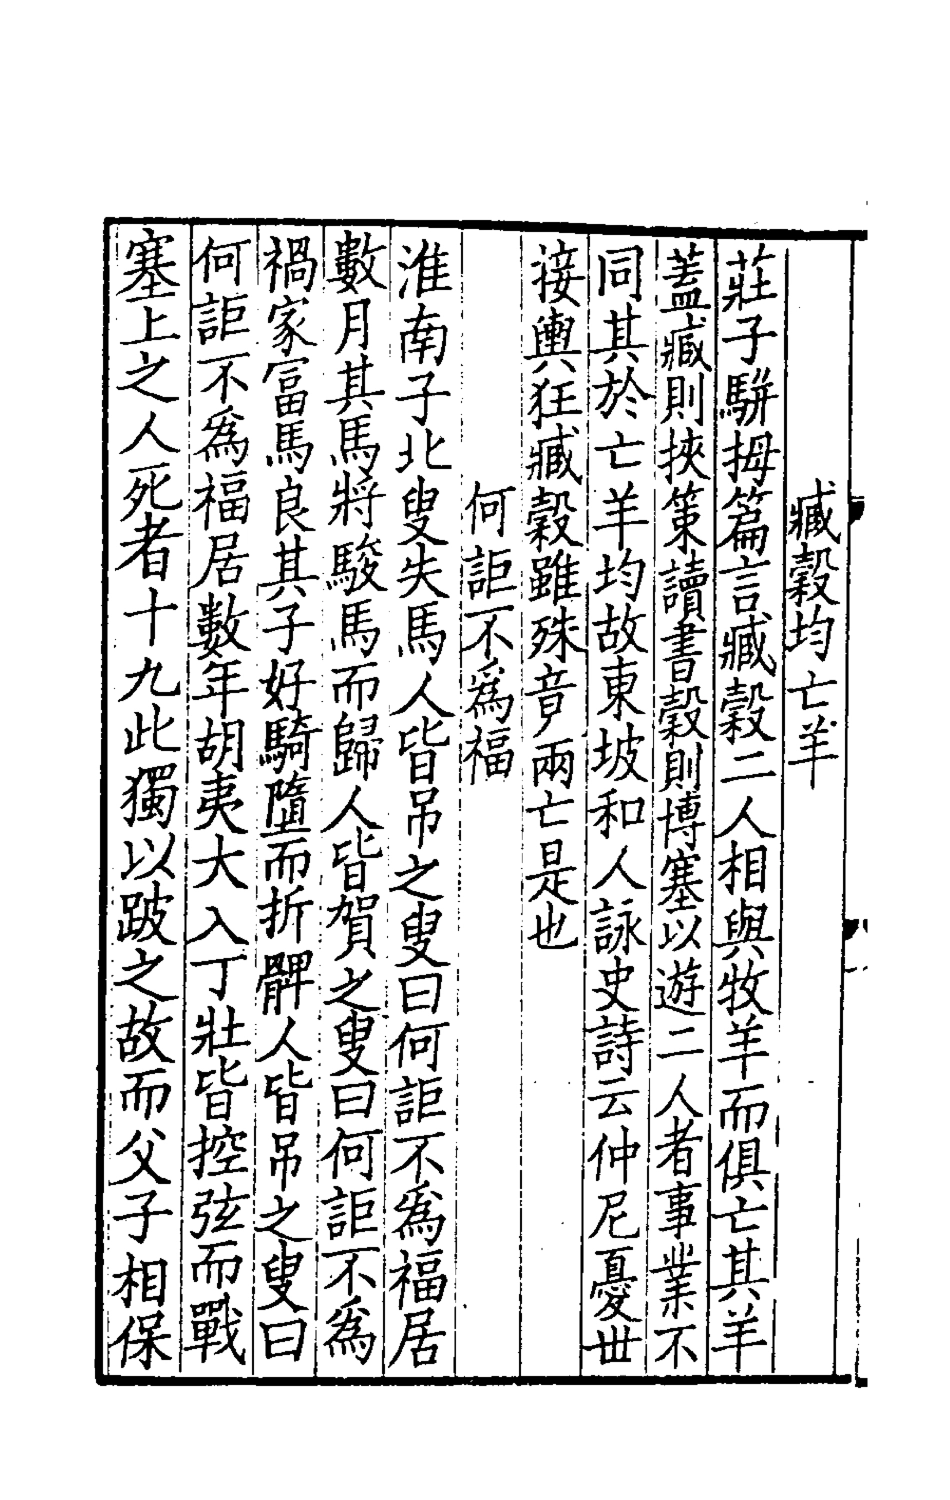 臧穀均亡羊
莊子駢拇篇言臧穀二人相與牧羊而俱亡其羊
蓋臧則挾策讀書穀則博塞以遊二人者事業不
同其於亡羊均故東坡和人詠史詩云仲尼憂世
接輿狂臧穀雖殊竟兩亡是也
何詎不為福
淮南子北叟失馬人皆吊之叟曰何詎不為福居
數月其馬將駿馬而歸人皆賀之叟曰何詎不為
禍家富馬良其子好騎墮而折髀人皆吊之叟曰
何詎不為福居數年胡夷大入丁壯皆控弦而戰
塞上之人死者十九此獨以跛之故而父子相保